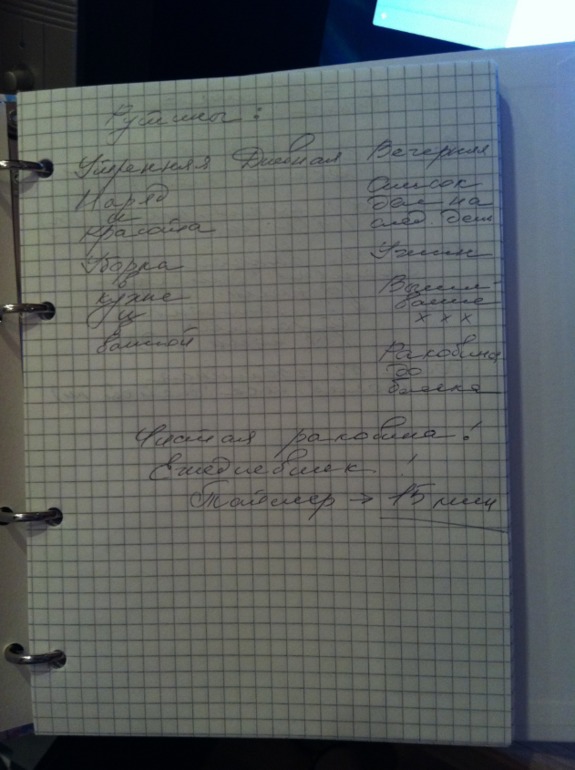 Рутины:
Утренняя Дневная Вечерняя
Наряд
и
красота
Уборка
в
кухне
и
ванной
Список
дел на
след день
Ужин
х х х
Раковина
до
блеска
Чистая раковина!
Ежедневник!
Таймер → 15 мин